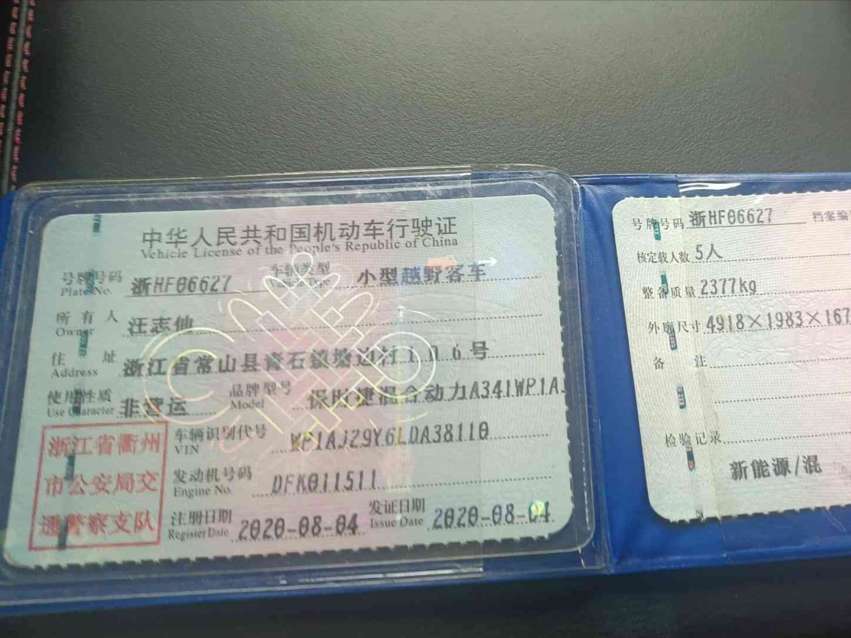 中华人民共和国机动车行驶证
Vehicle License of the People's Republic of China
号牌号码 浙HF06627 车辆类型 小型越野客车
Plate No. Vehicle Type
所有人 汪志仙
Owner
住址 浙江省常山县青石镇塘边村106号
Address
使用性质 非营运 品牌型号 保时捷混合动力A341WP1AJ
Use Character Model
浙江省衢州
市公安局交
通警察支队
车辆识别代号 WP1AJ29Y6LDA38110
VIN
发动机号码 DFK011511
Engine No.
注册日期 2020-08-04 发证日期 2020-08-04
Register Date Issue Date
号牌号码 浙HF06627 档案编
核定载人数 5人
整备质量 2377kg
外廓尺寸 4918×1983×167
备注
检验记录
新能源/混